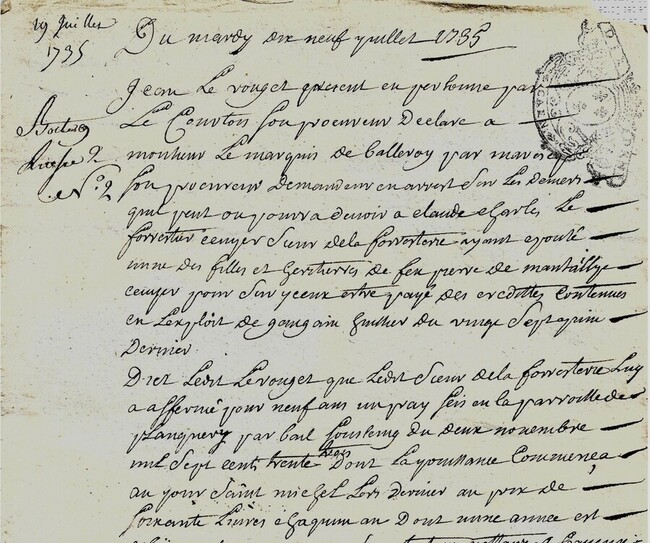 19 Juillet
1735
Du mardy dix neuf juillet 1735
Jean Le rouget present en personne par
Le Courtois son procureur Declare a
monsieur Le marquis de Balleroy par marois
son procureur Demandeur en arrest sur Les deniers
que peut ou pourra devoir a claude charles Le
forrestier ecuyer sieur dela forresterie ayant epousé
unne des filles et herittieres de feu pierre de
ecuyer pour sur yceux estre payé des credittes Contenues
en Lexploit de gaugain huissier du vingt sept juin
Dernier
Dict Ledit Lerouget que Ledit sieur dela forresterie Luy
a affermé pour neuf ans un pray seis en la parroisse de
planquery par bail sousseing du deux novembre
mil sept cents trente trois Dont La jouissance Commença
au jour saint michel Lors dernier au prix de
soixante Livres chaquun an Dont unne année est
N.o 2
CAEN